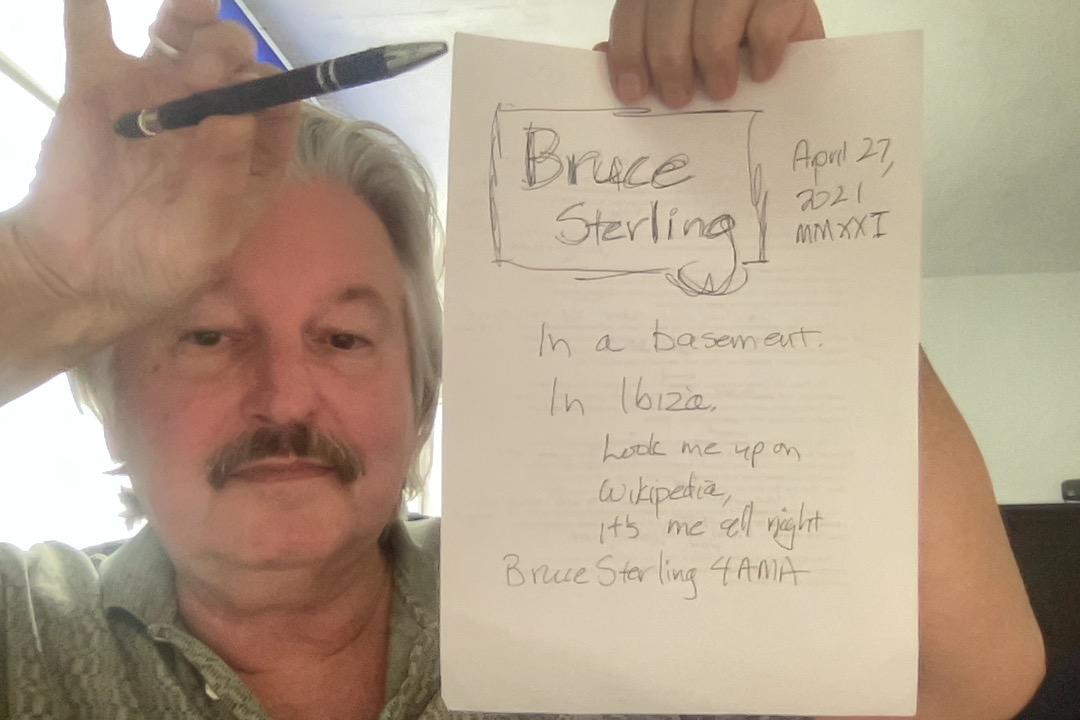 Bruce
Sterling
April 27,
2021
MMXXI
In a basement.
In Ibiza.
Look me up on
Wikipedia,
it's me all right
Bruce Sterling 4 AMA